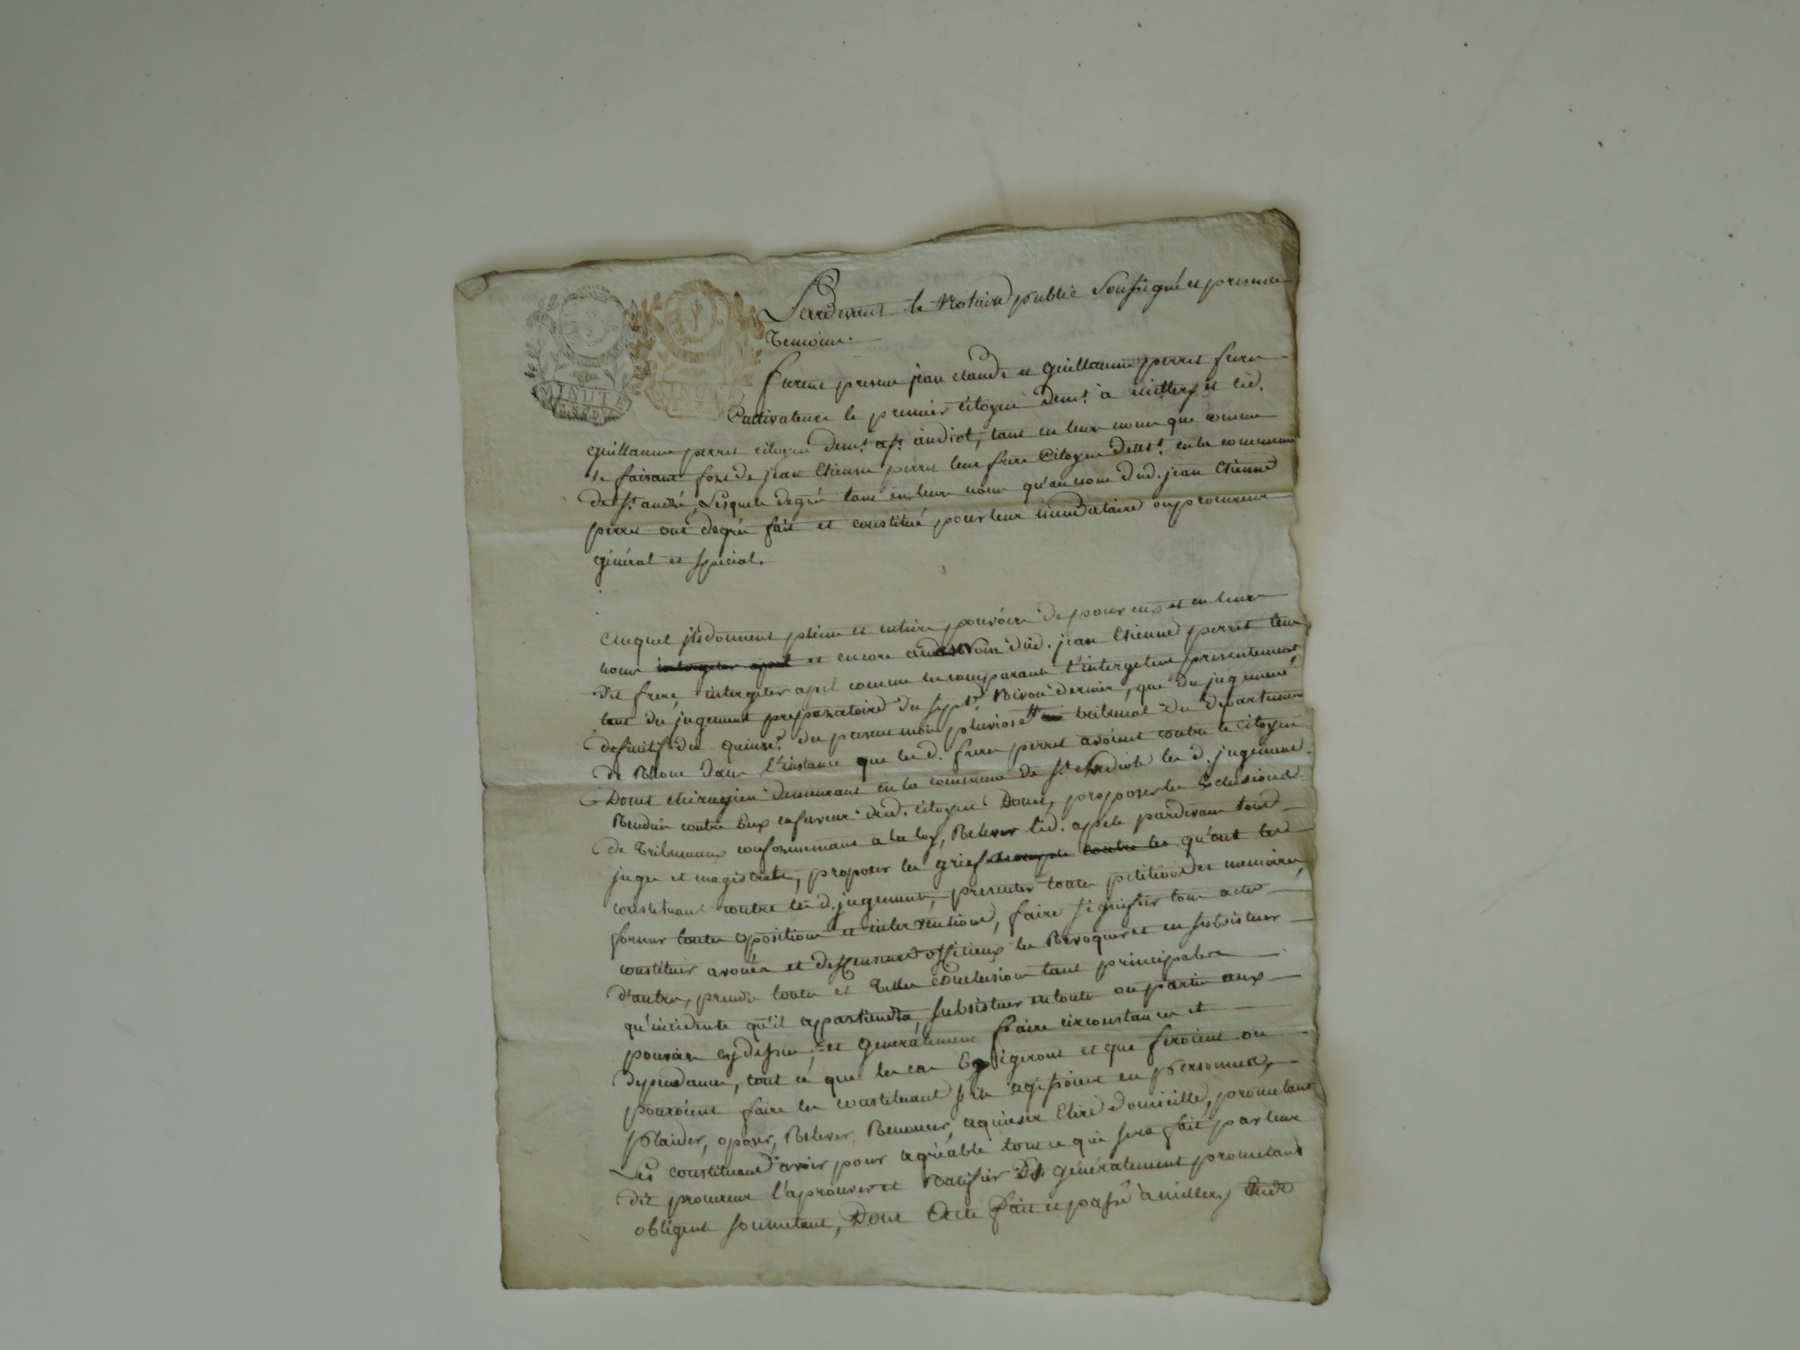 MINUTE
MINUTE
Pardevant le Notaire public Soussigné et presence
Temoins.
furent presens jean claude et Guillaume perret freres
Cultivateurs le premier citoyen demt. à millery et led.
Guillaume perret citoyen demt. à st. andiol, tant en leurs noms que comme
se faisant fort de jean Etienne perret leur frere Citoyen demt. en la commune
de st. andré, Lesquels degré tant en leurs noms qu'au nom dud. jean Etienne
perret ont degré fait et constitué pour leur mandataire ou procureur
général et spécial.
Auquel ils donnent plein et entier pouvoir de pour eux et en leurs
noms interjeter apel et encore au nom dud. jean Etienne perret leur
dit frere, interjeter apel comme les comparants l'interjetent presentement
tant du jugement preparatoire du sept. Nivose dernier, que du jugement
definitif du quinze. du present mois pluviose tribunal du departement
de Rhone dans l'instance que les d. freres perret avoient contre le citoyen
Donet chirurgien demeurant en la commune de st. Andiol les d. jugements
Rendus contre Eux en faveur dud. citoyen Donet, proposer les Exclusions
de Tribunaux conformement a la loy, Relever led. apel pardevant tous
juges et magistrats, proposer les griefs contre les qu'ont les
constituants contre les d. jugements, presenter toutes petitions et memoires,
former toutes opositions et interventions, faire signifier tous actes
constituer avoués et deffenseurs officieux les Revoquer et en subsistuer
d'autres, prendre toutes et Telles conclusions tant principales
qu'incidentes qu'il appartiendra, subsistuer en toute ou partie aux
pouvoirs cy dessus, et generalement faire circonstances et
dependances, tout ce que les cas Exigeront et que feroient ou
pouroient faire les constituants s'ils agissoient en personnes,
plaider, oposer, Relever, Renoncer, aquiescer Elire domicille, promettant
Les constituants d'avoir pour agréable tout ce qui sera fait par leur
dit procureur l'aprouver et Ratifier Et généralement promettant
obligeant soumettant, Dont Acte fait et passé à millery